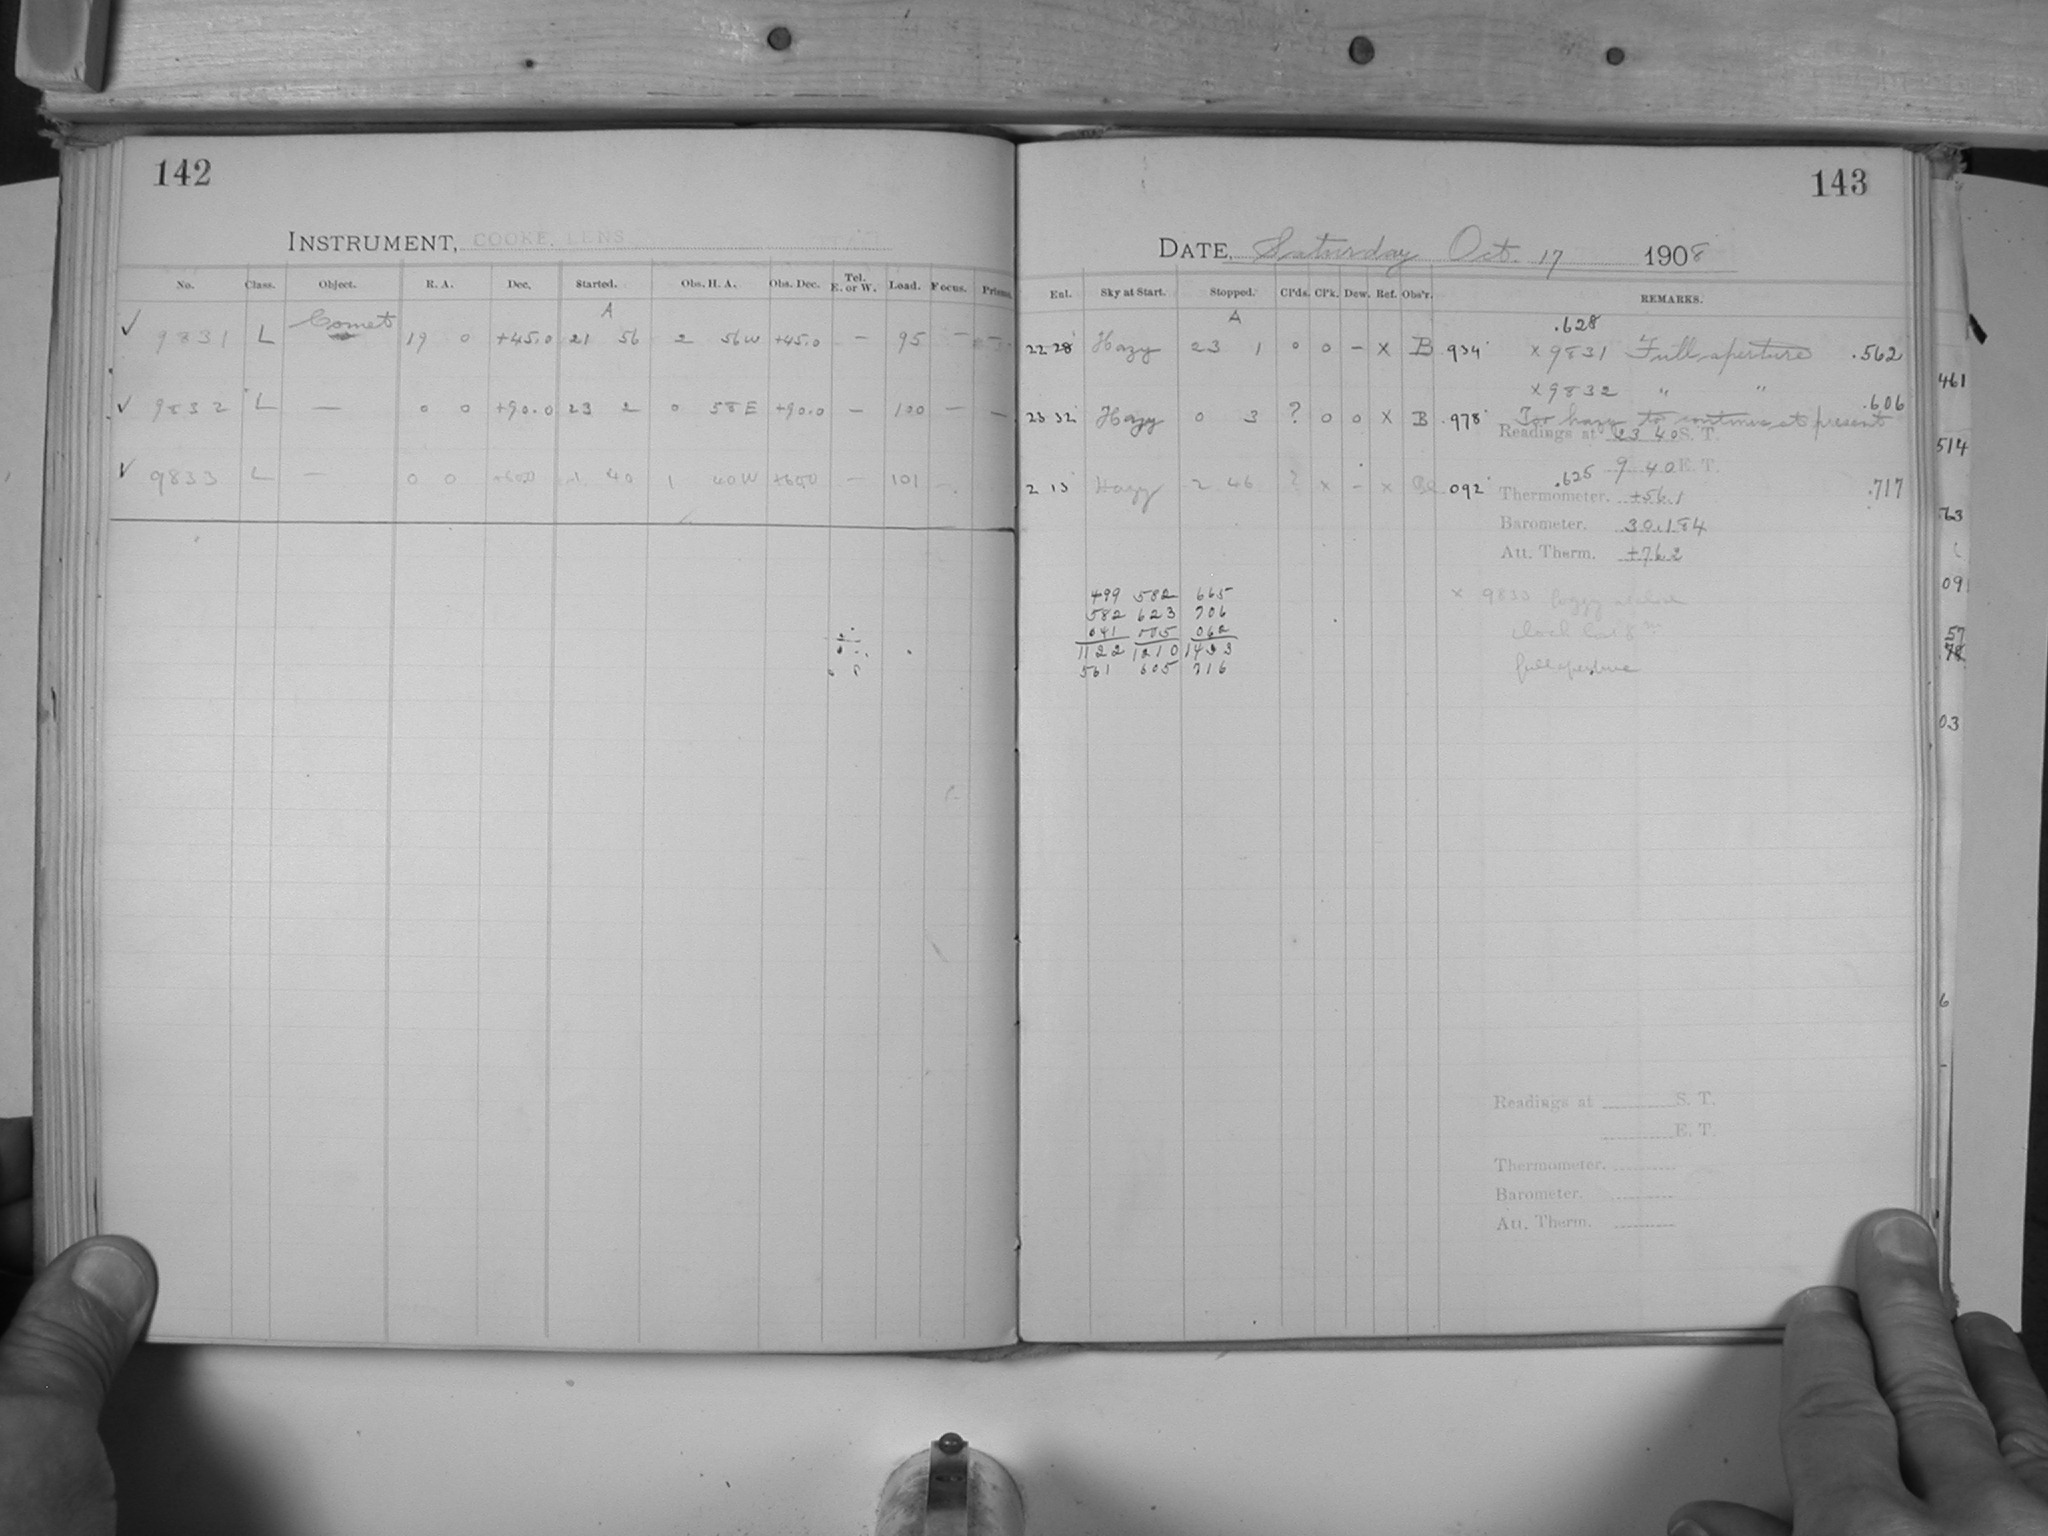 142
INSTRUMENT, COOKE LENS
No. Class. Object. R. A. Dec. Started. Obs. H. A. Obs. Dec. Tel. E. or W. Load. Focus. Prisms.
A
✓ 9831 L Comet 19 0 +45.0 21 56 2 56W +45.0 – 95 – –
✓ 9832 L — 0 0 +90.0 23 2 0 58E +90.0 – 100 – –
✓ 9833 L — 0 0 +60.0 1 40 1 40W +60.0 – 101 –
143
DATE, Saturday Oct. 17 1908
Enl. Sky at Start. Stopped. Cl'ds. Cl'k. Dew. Ref. Obs'r. REMARKS.
A .628
22 28 Hazy 23 1 0 0 – x B .934 x 9831 Full aperture .562
x 9832 " "
.606
23 32 Hazy 0 3 ? 0 0 x B .978 Too hazy to continue at present
Readings at 23 40 S. T.
.625 9 40 E. T.
2 13 Hazy 2 46 ? x – x 092 Thermometer. +56.1 .717
Barometer. 30.184
Att. Therm. +76.2
499 582 665
582 623 706
041 005 062
1122 1210 1433
561 605 716
x 9833 foggy
clock lost 8m
full aperture
Readings at S. T.
E. T.
Thermometer.
Barometer.
Att. Therm.
461
514
63
09
57
78
03
6